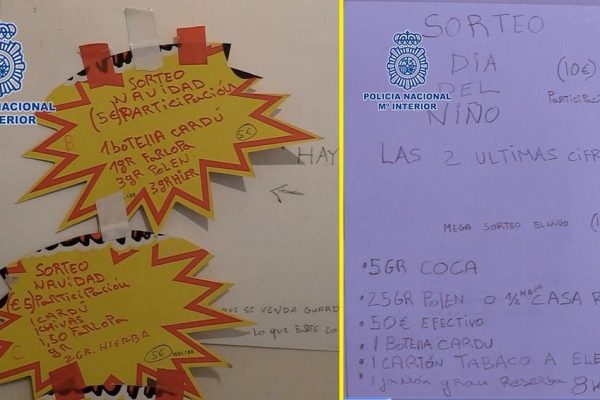 POLICÍA NACIONAL
Mº INTERIOR
SORTEO
NAVIDAD
(5€) PARTICIPACIÓN
1 BOTELLA CARDÚ
1gr FARLOPA
3gr POLEN
3gr HIER
5€
HAY
SORTEO
NAVIDAD
PARTICIPACIÓN
CARDÚ
1,50 FARLOPA
gr
2GR. HIERBA
5€
QUE SE VENDA GUARD
LO QUE ESTE LO
SORTEO
DIA
DEL
NIÑO
(10€)
PARTICIPACIÓ
POLICÍA NACIONAL
Mº INTERIOR
LAS 2 ULTIMAS CIFR
MEGA SORTEO EL NIÑO (1
• 5GR COCA
• 25GR POLEN O 1/2 CASA R
• 50€ EFECTIVO
• 1 BOTELLA CARDU
• 1 CARTÓN TABACO A ELE
• 1 JAMÓN gran RESERVA 8K